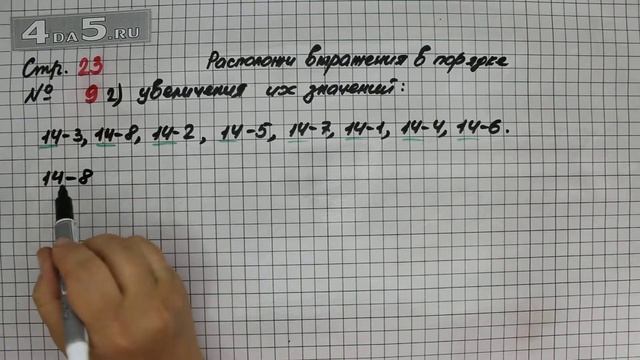 4DA5.RU
Стр. 23 Расположи выражения в порядке
№ 9 2) увеличения их значений:
14-3, 14-8, 14-2, 14-5, 14-7, 14-1, 14-4, 14-6.
14-8